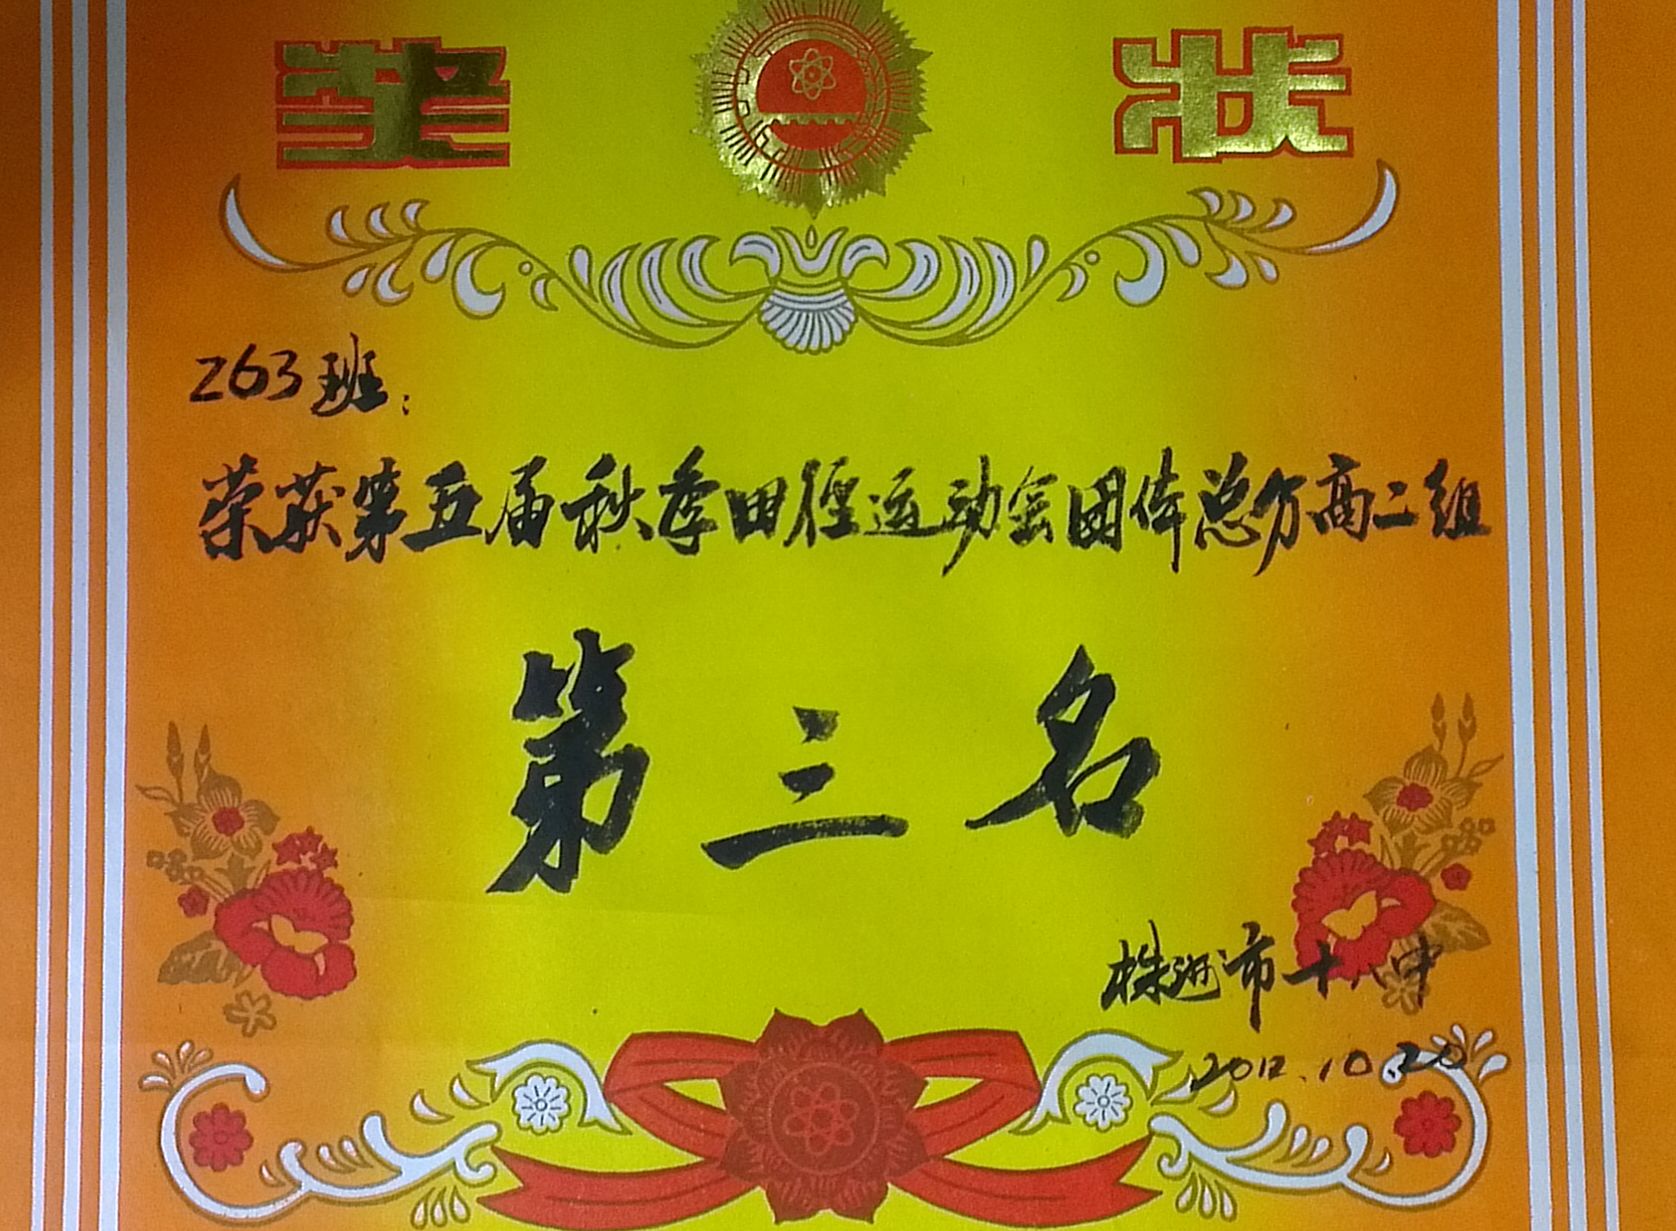 奖状
263班:
荣获第五届秋季田径运动会团体总分高二组
第三名
株洲市十八中
2012.10.20